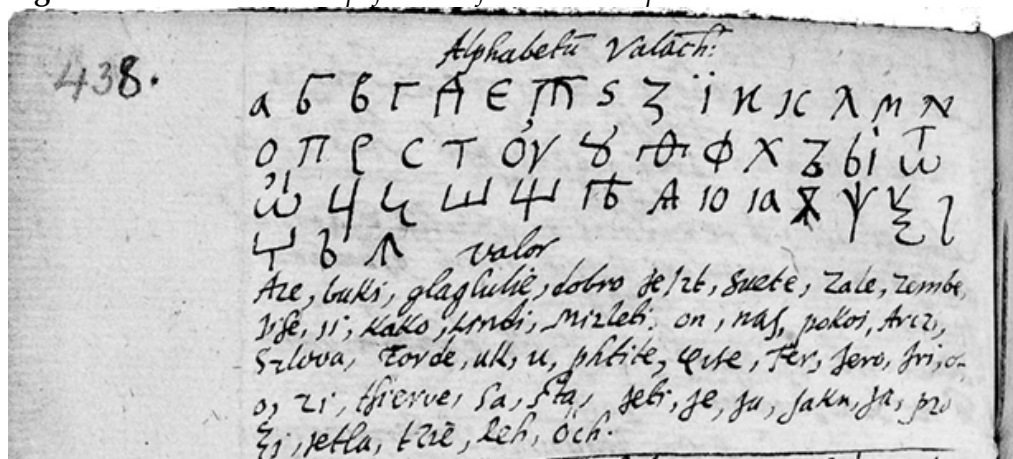 Alphabetū Valach:
438.
а б в г д є ж ѕ з ї и к л м н
о п р с т оу ꙋ ѳ ф х ъ ы ѿ
ц ч ш щ ѣ ѧ ю ꙗ ѫ ѱ ѯ
ь valor
Aze, buki, glaglulie, dobro jeszt, zuete, Zale, zembe,
Iise, ii, kako, Mizleti, on, nas, pokoi, Arczi,
Szlova, tovde, uk, u, phtite, Fer, jero, jri, o-
o, zi, tſierve, ſa, ſta, jeti, je, ju, jakn, ja, pzo
ξi, jetla, tzie, leh, och.